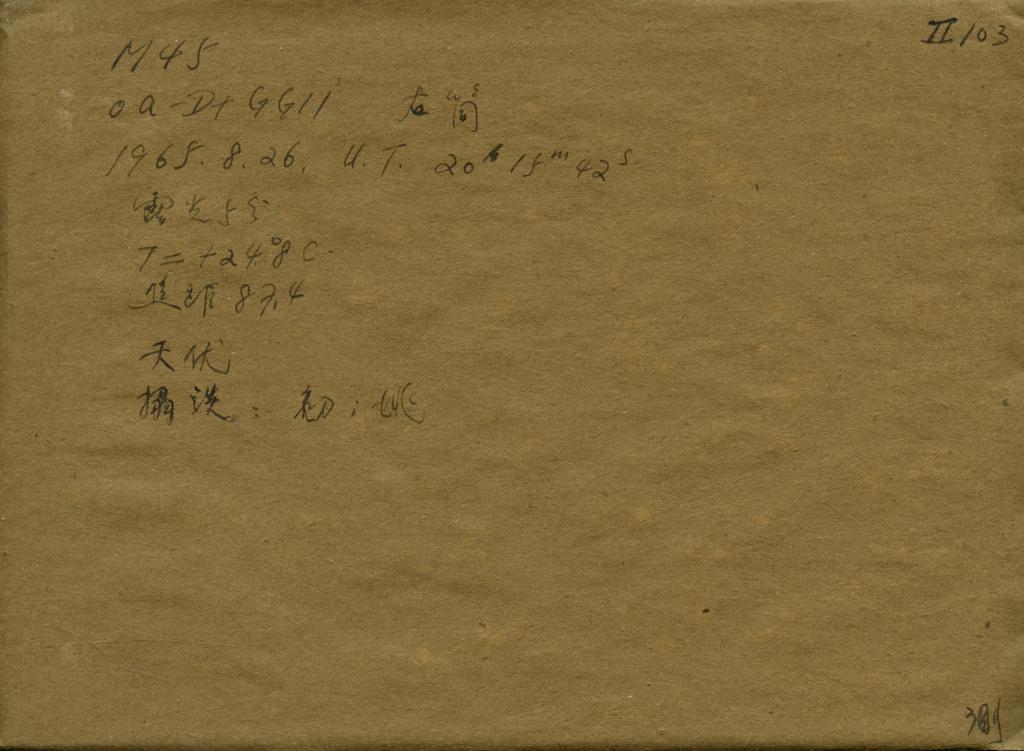 II/03
M45
oa-D+GG11 右筒
1965.8.26. U.T. 20h15m42s
露光5分
T=+24°.8C.
焦距 87.4
天优
摄洗:初;姚
测